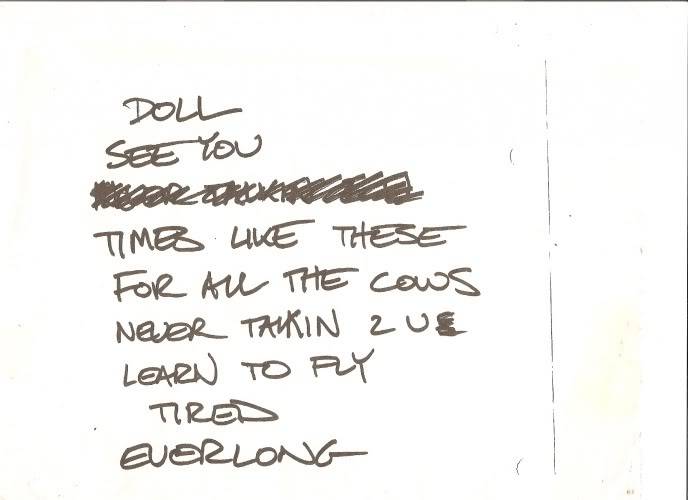 DOLL
SEE YOU
TIMES LIKE THESE
FOR ALL THE COWS
NEVER TALKIN 2 U
LEARN TO FLY
TIRED
EVERLONG